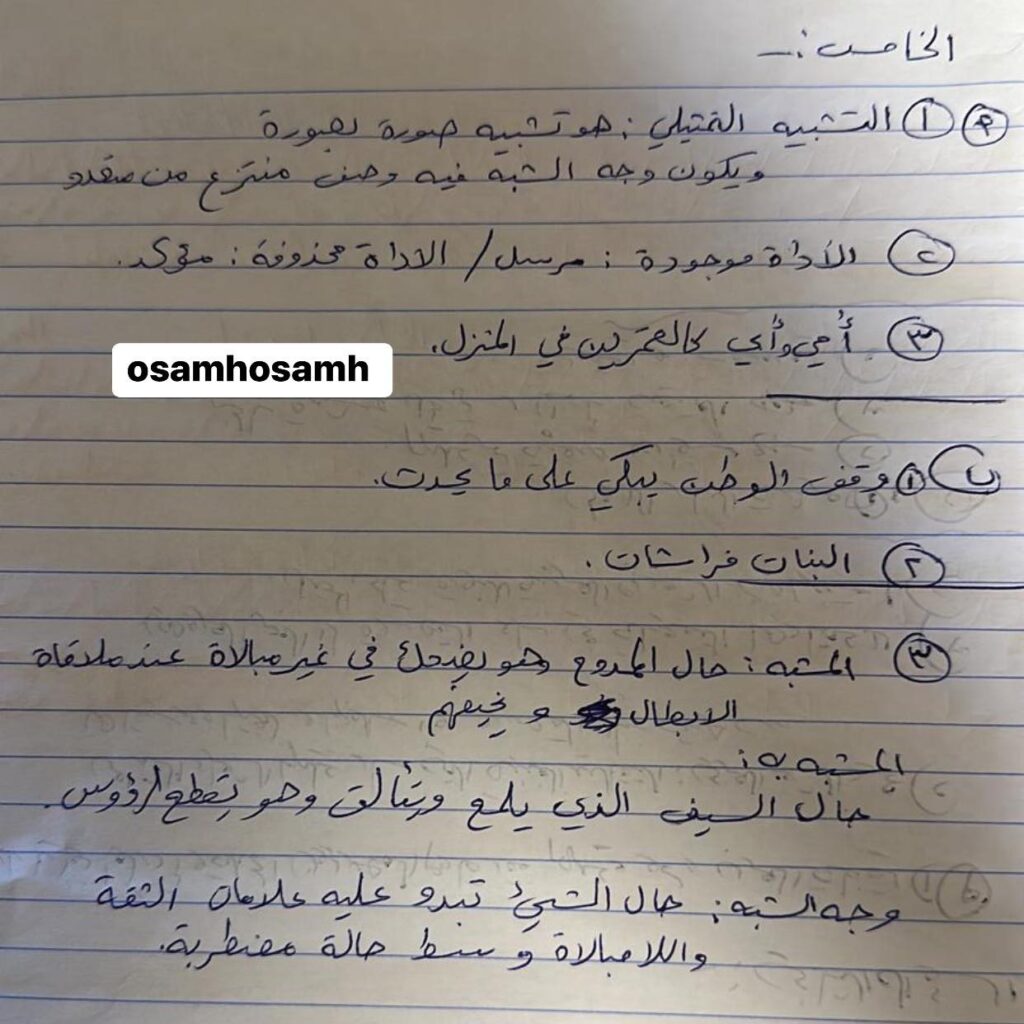 الخامس :ـ
م ١ التشبيه التمثيلي : هو تشبيه صورة بصورة
ويكون وجه الشبه فيه وصف منتزع من متعدد
٢ الأداة موجودة : مرسل / الاداة محذوفة : مؤكد.
٣ أُمي وأُبي كالقمرين في المنزل.
osamhosamh
ب ١ وقف الوطن يبكي على ما يحدث.
٢ البنات فراشات .
٣ المشبه : حال الممدوح وهو يضحك في غير مبالاة عند ملاقاة
الابطال و يخيفهم
المشبه به :
حال السيف الذي يلمع ويتألق وهو يقطع الرؤوس.
وجه الشبه : حال الشيئ تبدو عليه علامات الثقة
واللامبالاة وسط حالة مضطربة.